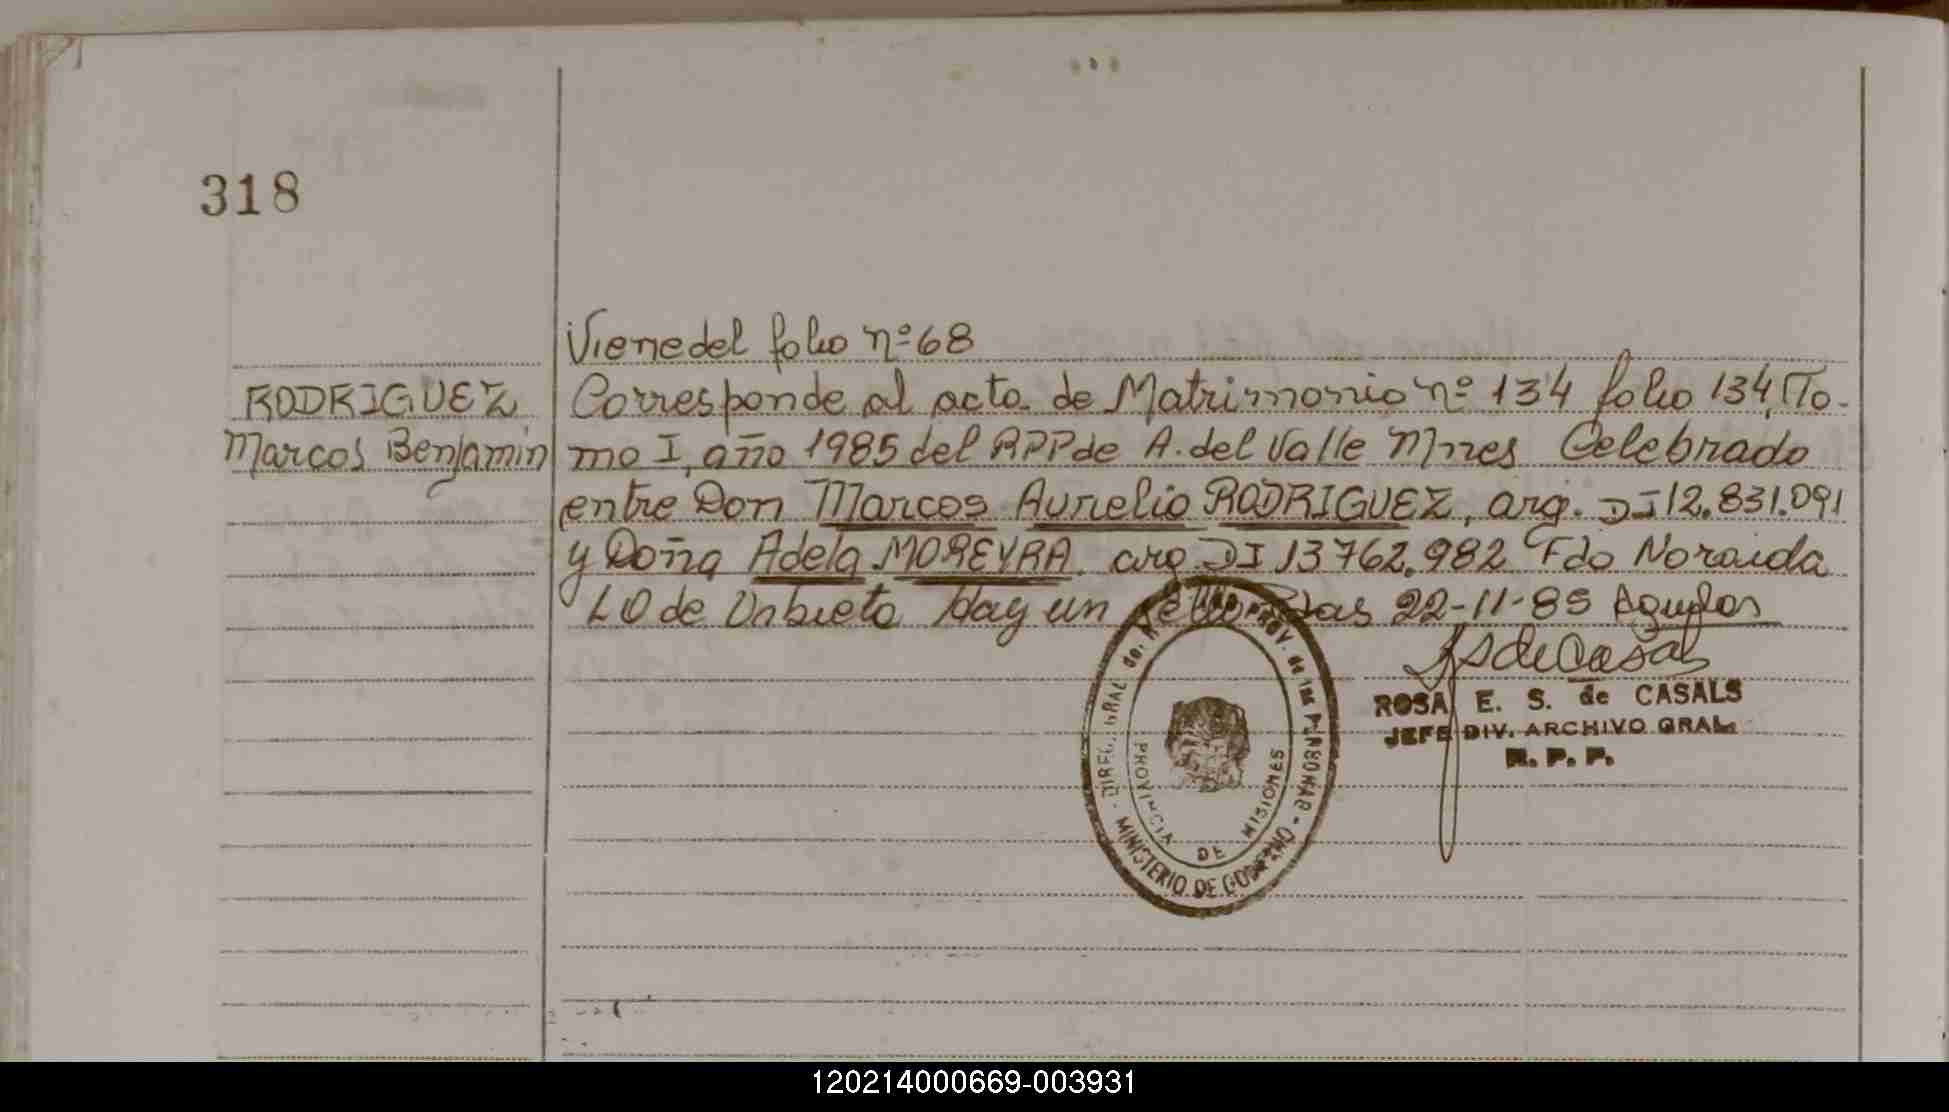 318
Viene del folio nº 68
RODRIGUEZ
Marcos Benjamin
Corresponde al acta de Matrimonio nº 134 folio 134, To-
mo I, año 1985 del RPP de A. del Valle Mnes Celebrado
entre Don Marcos Aurelio RODRIGUEZ, arg. DI 12.831.091
y Doña Adela MOREYRA arg DI 13762.982 Fdo Noraida
LO de Urbieta Hay un sello Pdas 22-11-85
ROSA E. S. de CASALS
JEFE DIV. ARCHIVO GRAL.
R. P. P.
PROV. de las PERSONAS
MINISTERIO DE GOBIERNO
PROVINCIA DE MISIONES
120214000669-003931